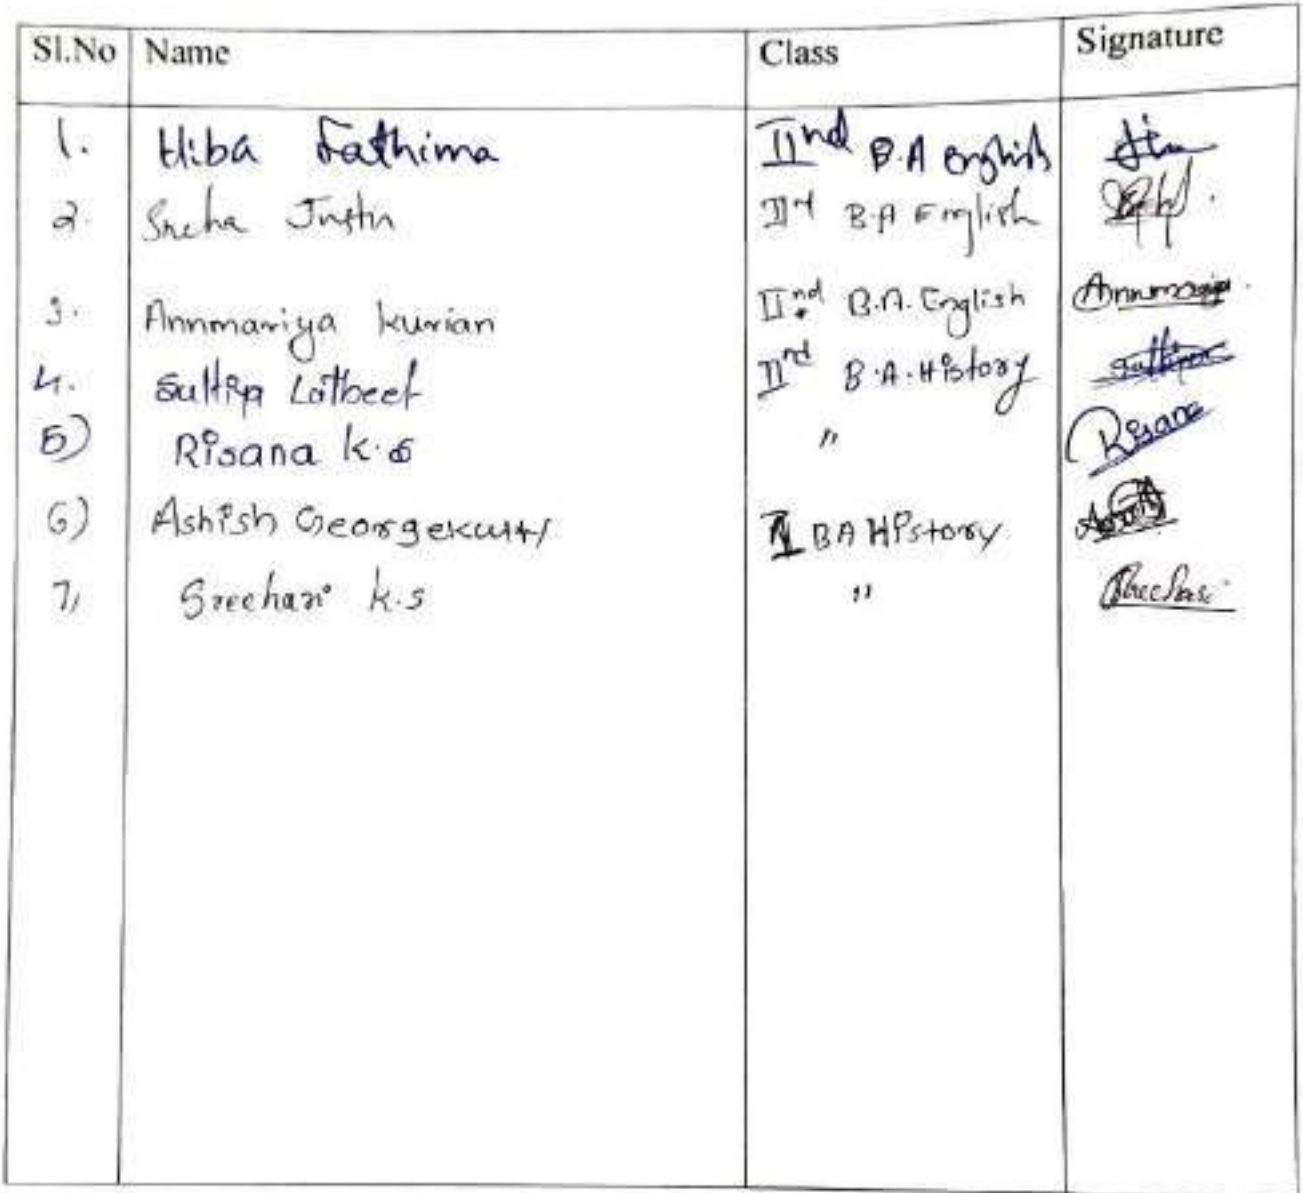 Sl.No Name Class Signature
1. Hiba Fathima IInd B.A English
2. Sneha Justin IInd B.A English
3. Annmariya Kurian IInd B.A. English Annmariya
4. Latheef IInd B.A. History
5) Risana K.S " Risana
6) Ashish Georgekutty BA History
7, Sreehari K.S " Sreehari